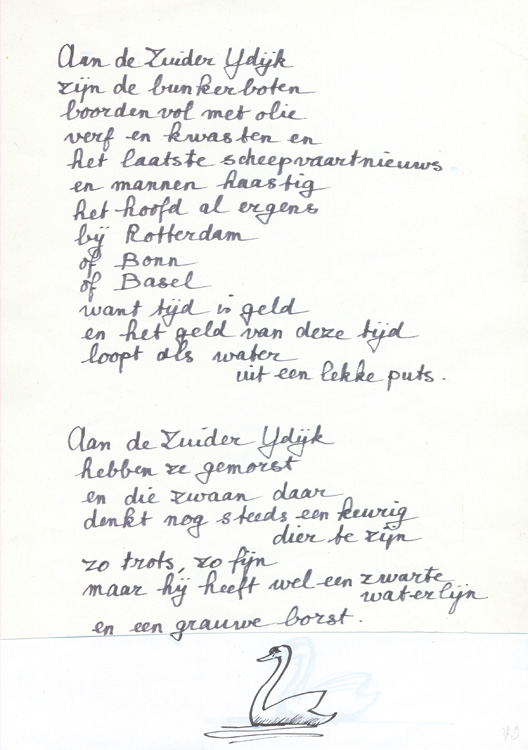 Aan de Zuider Ydijk
zijn de bunkerboten
boordenvol met olie
verf en kwasten en
het laatste scheepvaartnieuws
en mannen haastig
het hoofd al ergens
bij Rotterdam
of Bonn
of Basel
want tijd is geld
en het geld van deze tijd
loopt als water
uit een lekke puts.
Aan de Zuider Ydijk
hebben ze gemorst
en die zwaan daar
denkt nog steeds een keurig
dier te zijn
zo trots, zo fijn
maar hij heeft wel een zwarte
waterlijn
en een grauwe borst.